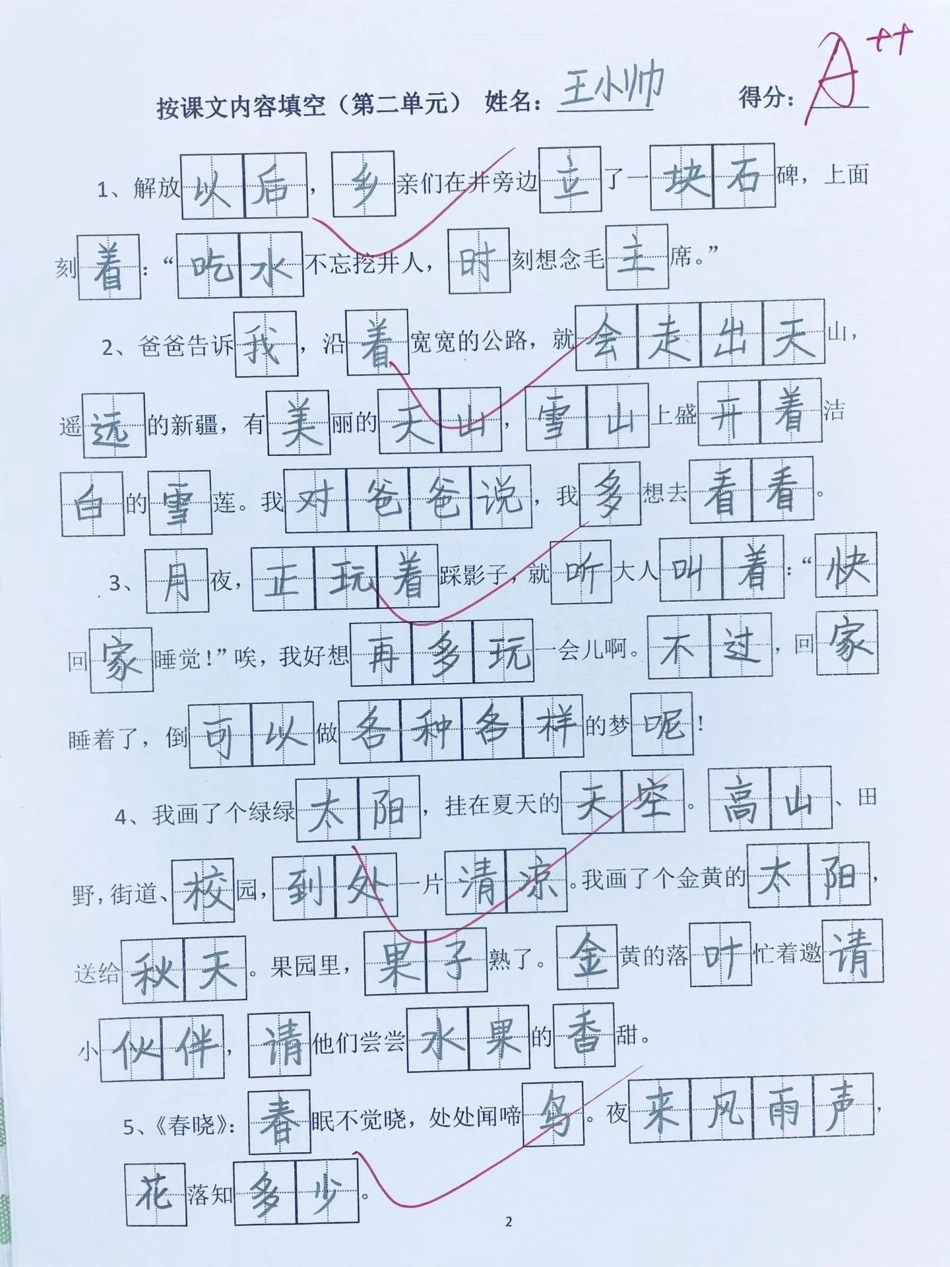 按课文内容填空（第二单元） 姓名：王小帅 得分：A++
1、解放以后，乡亲们在井旁边立了一块石碑，上面
刻着：“吃水不忘挖井人，时刻想念毛主席。”
2、爸爸告诉我，沿着宽宽的公路，就会走出天山，
遥远的新疆，有美丽的天山，雪山上盛开着洁
白的雪莲。我对爸爸说，我多想去看看。
3、月夜，正玩着踩影子，就听大人叫着：“快
回家睡觉！”唉，我好想再多玩一会儿啊。不过，回家
睡着了，倒可以做各种各样的梦呢！
4、我画了个绿绿太阳，挂在夏天的天空。高山、田
野，街道、校园，到处一片清凉。我画了个金黄的太阳，
送给秋天。果园里，果子熟了。金黄的落叶忙着邀请
小伙伴，请他们尝尝水果的香甜。
5、《春晓》：春眠不觉晓，处处闻啼鸟。夜来风雨声，
花落知多少。
2